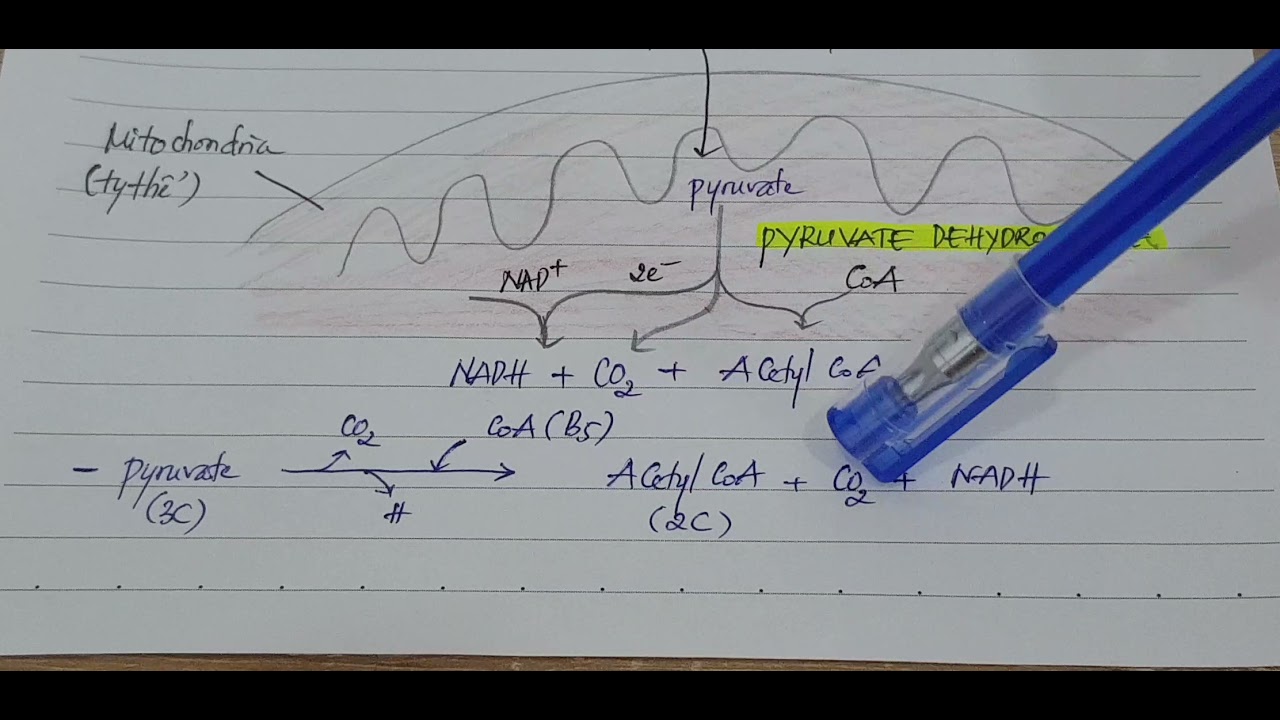 Mitochondria
(ty thể)
pyruvate
PYRUVATE DEHYDRO
NAD⁺ 2e⁻ CoA
NADH + CO₂ + ACetyl CoA
CO₂ CoA (B5)
- pyruvate ACetyl CoA + CO₂ + NADH
(3C) H (2C)